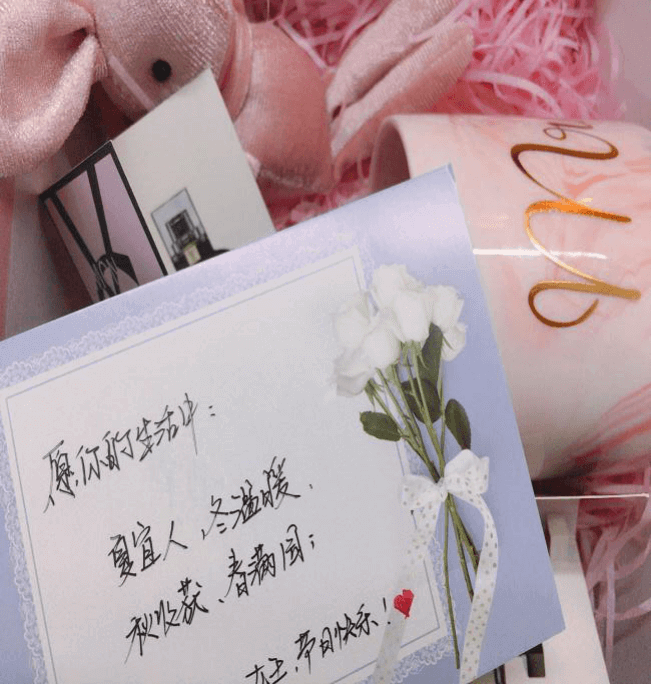 愿你的生活中：
夏宜人、冬温暖、
秋收获、春满园；
节日快乐！